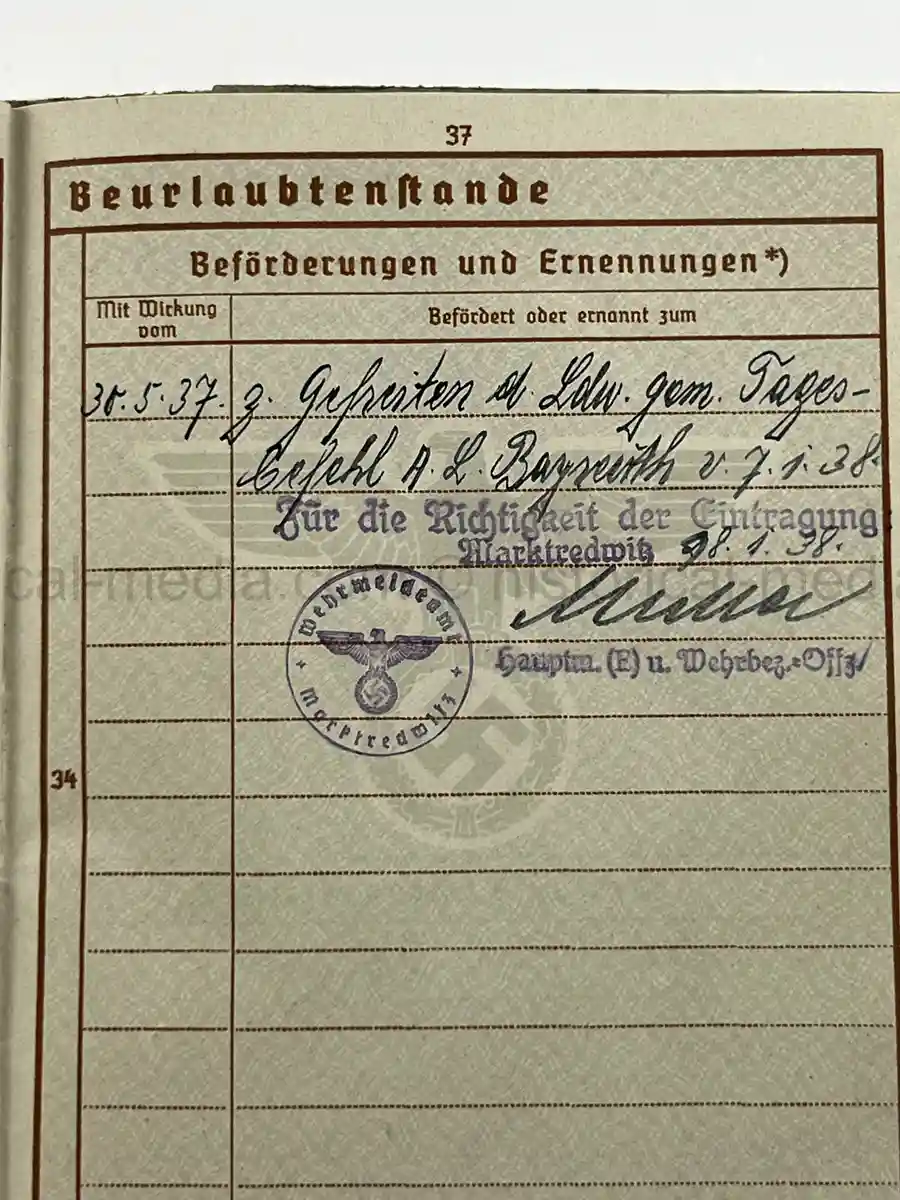 37
Beurlaubtenstande
Beförderungen und Ernennungen*)
Mit Wirkung vom
Befördert oder ernannt zum
30.5.37. z. Gefreiten d. Ldw. gem. Tages-
befehl A. L. Bayreuth v. 7.1.38.
Für die Richtigkeit der Eintragung
Marktredwitz 8.1.38.
Wehrmeldeamt
Marktredwitz
Hauptm. (E) u. Wehrbez.-Offz
34